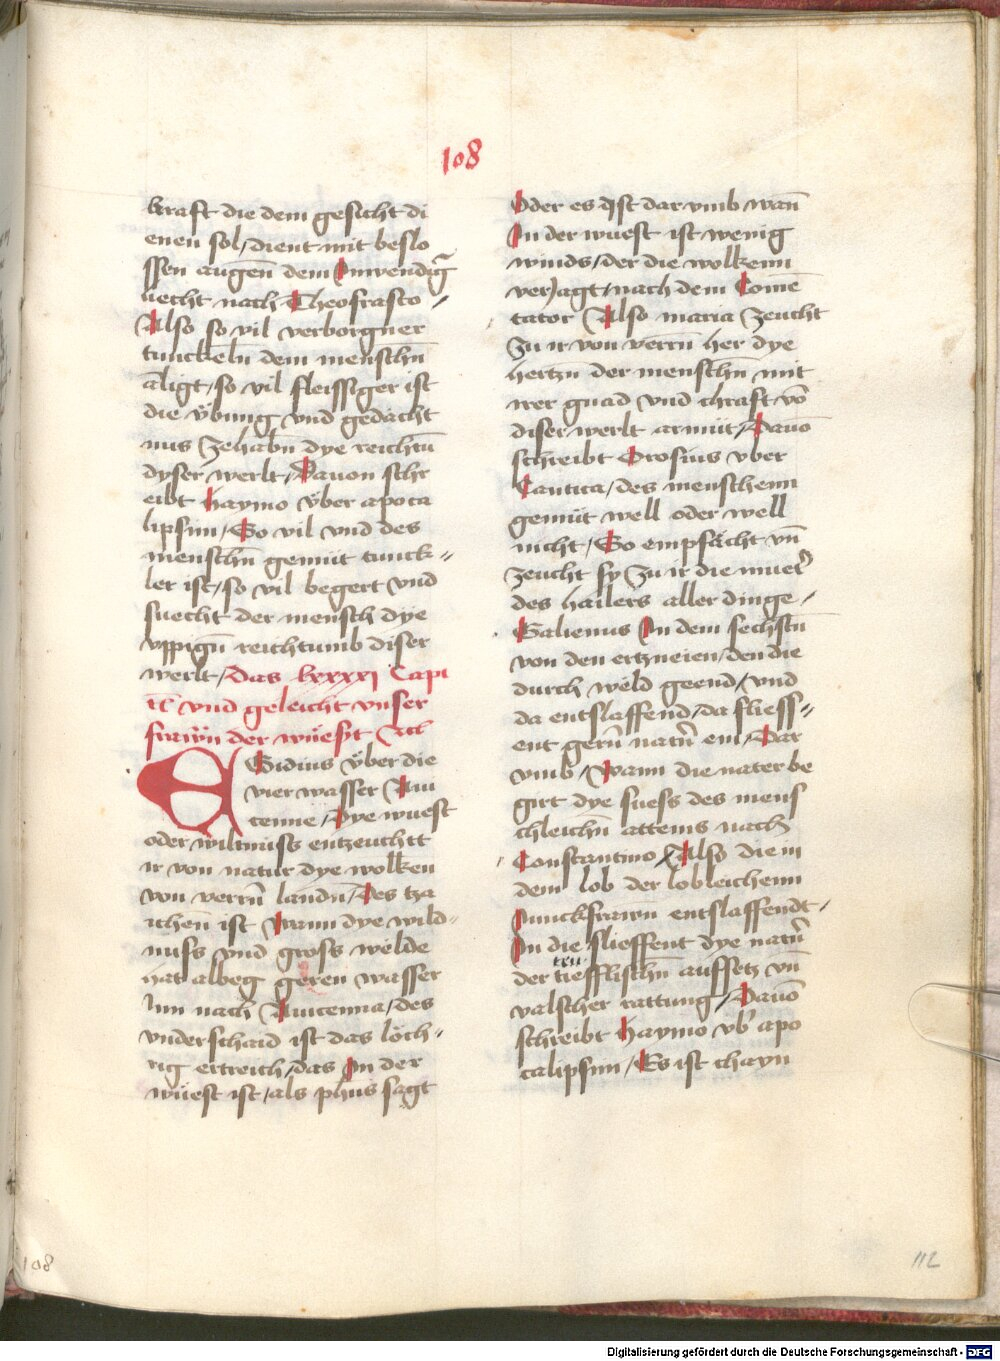 108
kraft die dem gesicht di
enen sol / dient mit beslo
ssen augen̄ dem Inwendig̃
liecht nach Theofrasto /
Also so vil verborgner
tunckeln̄ dem mensch̄n
āligt / so vil fleissiger ist
die v̈bung vnd gedacht
nus zehabn̄ dye reichtū
dyser werlt / Dauon schr
eibt haymo v̈ber apoca
lipsim / So vil vnd des
mensch̄n gemüt tunck=
ler ist / so vil begert vnd
suecht der mensch dye
vppign̄ reichtumb diser
werlt / das lxxxxj Capi
tl̄ vnd geleicht vnser
frawn̈ der wüest Ca
EGidius v̈ber die
vier wasser Aui
cenne / Dye wuest
oder wiltnuss entzeuchtt
ir von natur dye wolken
von verrn̄ landn̄ / Des tza
ichen̄ ist Wann dye wild=
nuss vnd gross wëlde
hat albeg geren wasser
Inn nach Auicenna / des
vnderschaid ist das löch=
rig ertreich / das In der
wüest ist / als phūs sagt
Oder es Ist dar vmb wan̄
In der wuest ist wenig
winds / der die wolkenn
verJagt / nach dem Comē
tator Also maria zeucht
zu ir von verrn̄ her dye
hertzn̄ der mensch̄n mit
irer gnad vnd chraft vō
diser werlt armüt / Dauō
schreibt Orosius vber
Cantica / des menschenn
gemüt well oder well
nicht / So empfächt vn̄
zeucht sy zu ir die muet̄
des hailers aller dinge /
Galienus In dem sechstn̄
von den ertzneien / den die
durch wëld geend / vnd
da entslaffend / da fliess=
ent gern̄ natr̄n ein / Dar
vmb / Wann die nater be
girt dye suess des mens
chleichn̄ attems nach
Constantino / Also die in
dem lob der lobleichenn
Junckfrawn entslaffendt /
In die slieffent dye natr̄n
der tiefflischn̄ aufsetz vn̄
valscher rattung / Dauō
schreibt haymo vb̄ apo
calipsim / Es ist chayn
108
112
Digitalisierung gefördert durch die Deutsche Forschungsgemeinschaft - DFG